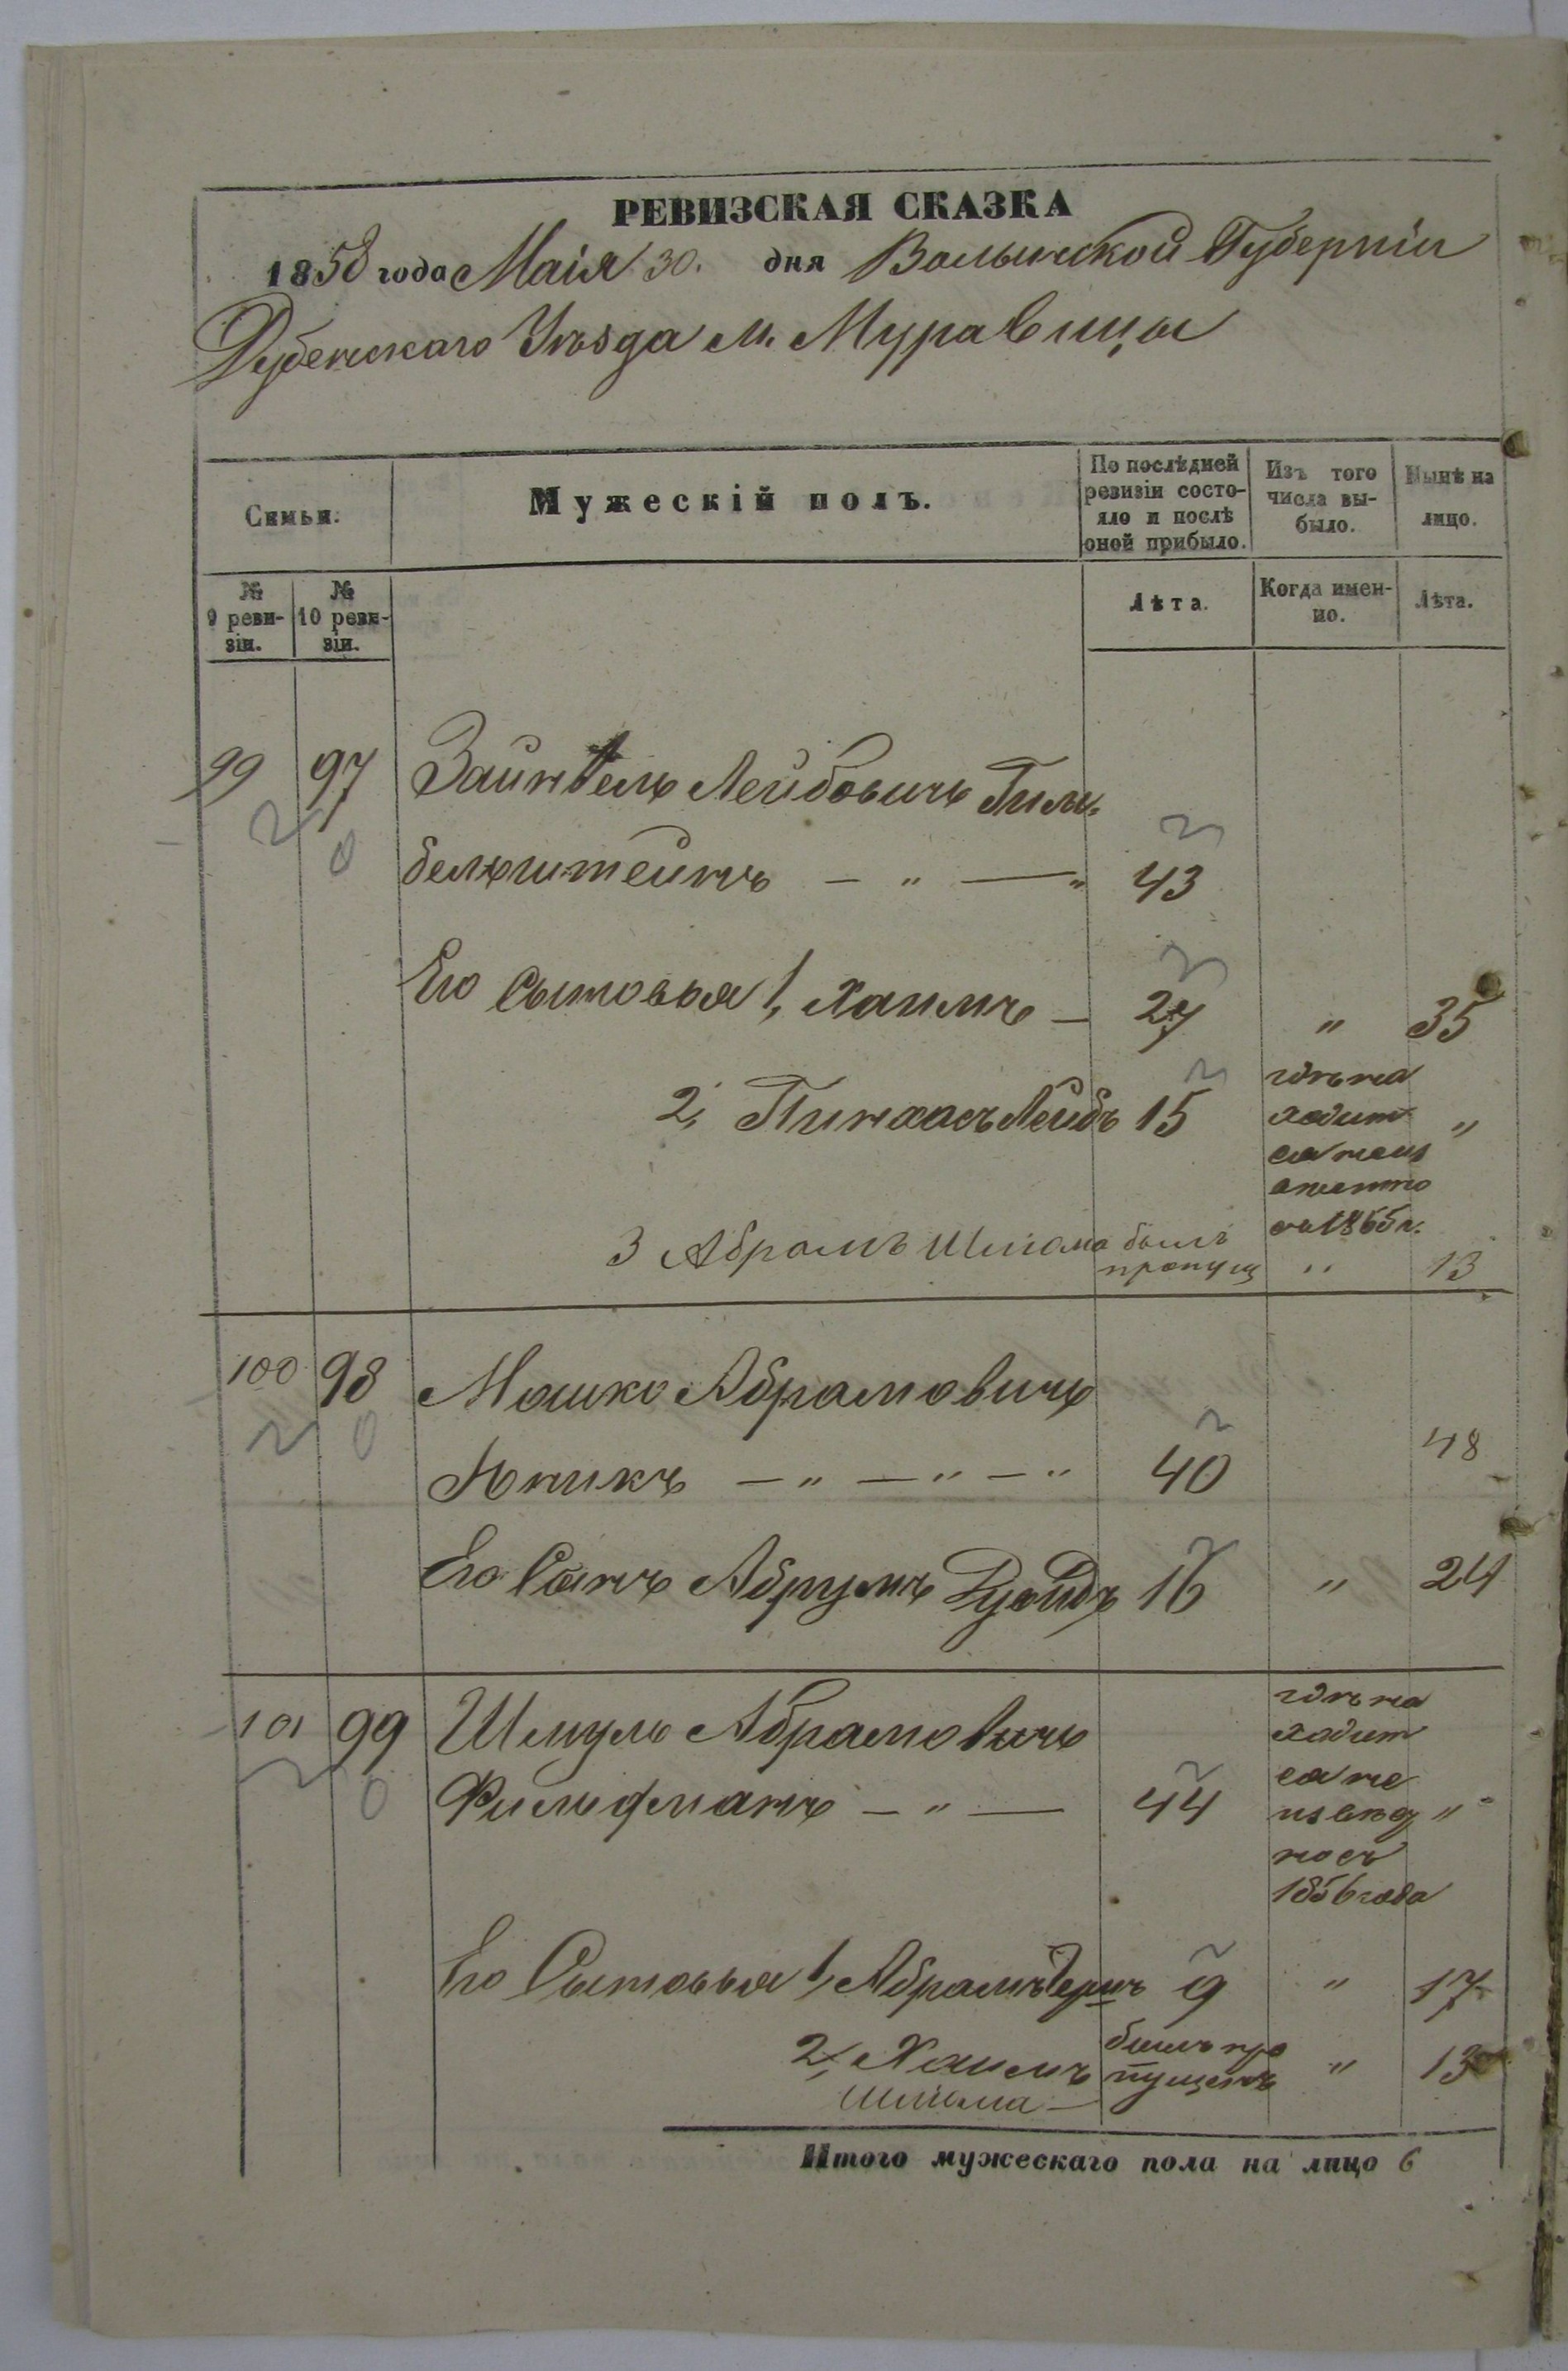 РЕВИЗСКАЯ СКАЗКА
1858 года Маія 30. дня Волынской Губерніи
Дубенскаго Уѣзда м. Муравицы
Симьи.
Мужескій полъ.
По послѣдней ревизіи состо-
яло и послѣ
оной прибыло.
Изъ того
числа вы-
было.
Нынѣ на
лицо.
№
9 реви-
зіи.
№
10 реви-
зіи.
Лѣта.
Когда имен-
но.
Лѣта.
99 97 Лейбовичъ Гим-
бельштейнъ — " — " 43
Его Сыновья 1, Хаимъ — 27 " 35
2, Пинхасъ Лейбъ 15 "
гдѣ на
ходит
ся неиз
с
3 Абрамъ Шліома былъ
пропущ " 13
100 98 Мошко Абрамовичъ
Юникъ — " — " — " 40 48
Его Сынъ Абрумъ 16 " 24
101 99 Шмуль Абрамовичъ
Фильфманъ — " — 44 "
гдѣ на
ходит
ся не
извѣд
но съ
1856 года
Его Сыновья 1, Абрамъ Беръ 9 " 17
2, Хаимъ
Шліома —
былъ про
пущенъ " 13
Итого мужескаго пола на лицо 6